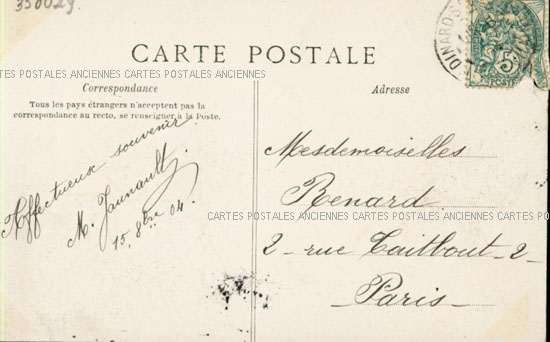 350029.
CARTE POSTALE
CARTES POSTALES ANCIENNES CARTES POSTALES ANCIENNES
Correspondance
Tous les pays étrangers n'acceptent pas la
correspondance au recto, se renseigner à la Poste.
Affectueux souvenir.
M. Jaunault.
15. 8bre 04.
DINARD
5
POSTE
Adresse
Mesdemoiselles
Renard
CARTES POSTALES ANCIENNES CARTES POSTALES ANCIENNES CARTES POS
2 - rue Taitbout - 2 -
Paris -